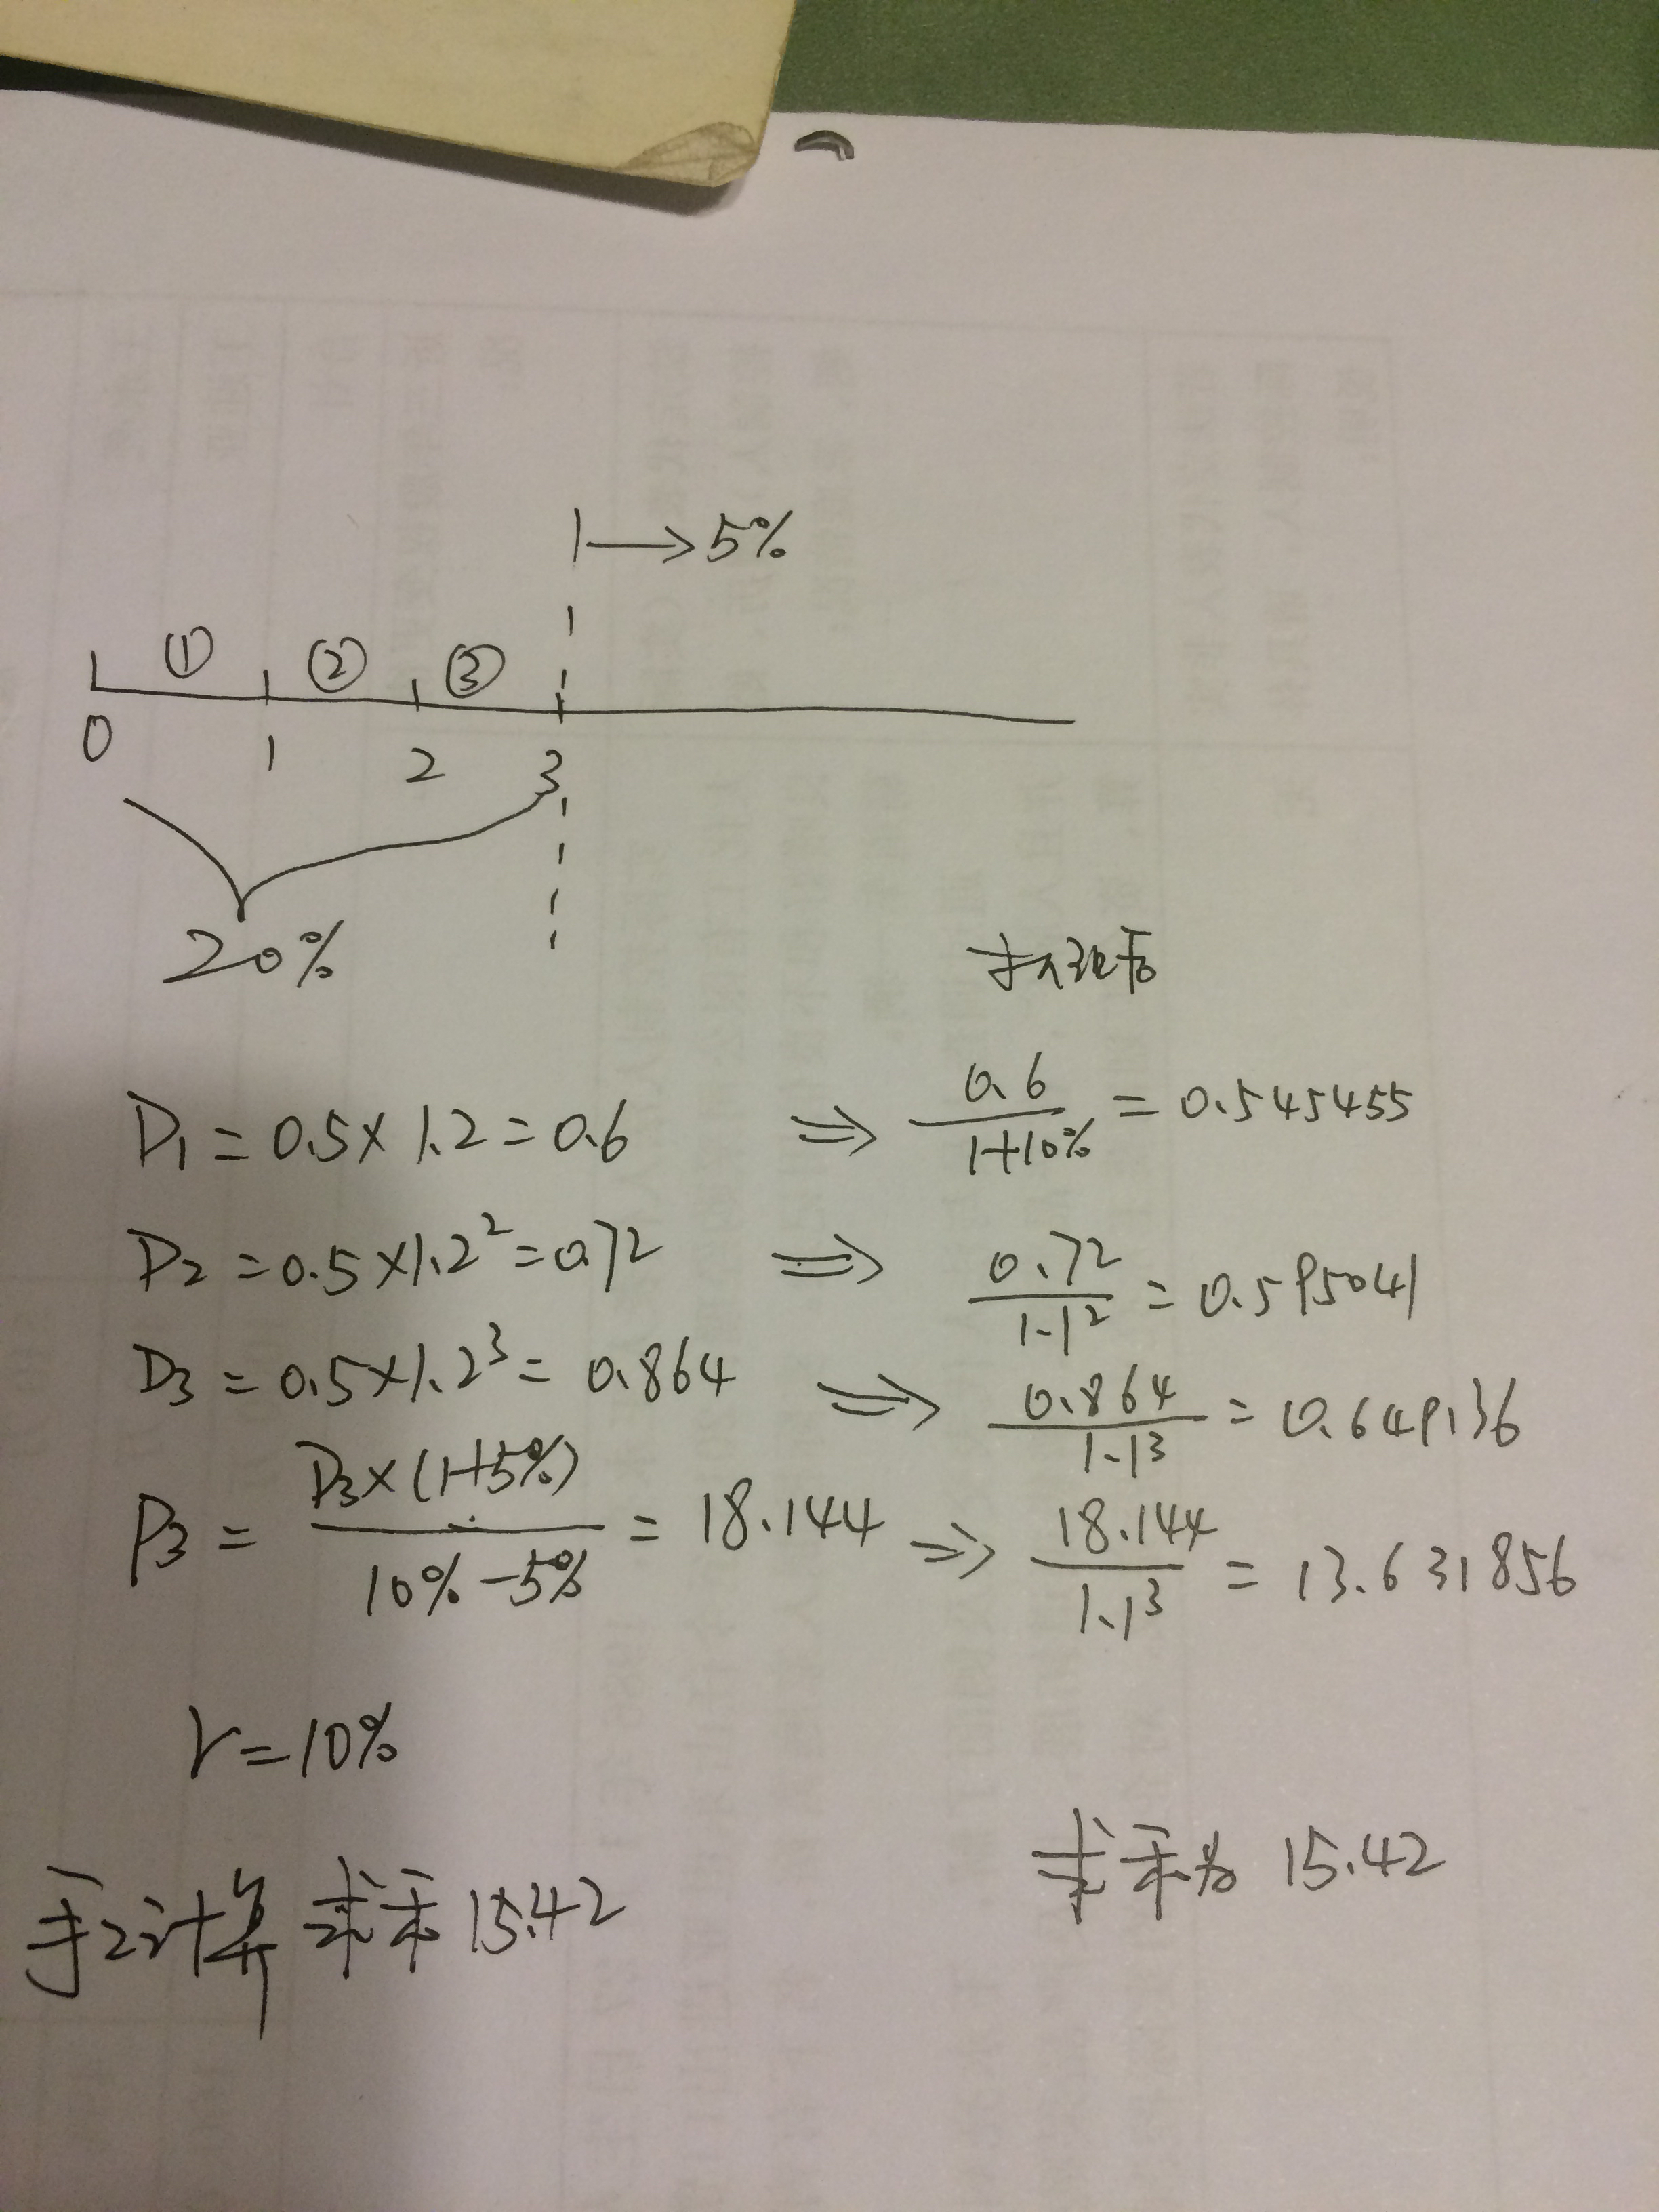 →5%
① ② ③
0 1 2 3
20%
折现后
D₁ = 0.5 × 1.2 = 0.6 ⇒ 0.6/(1+10%) = 0.545455
D₂ = 0.5 × 1.2² = 0.72 ⇒ 0.72/1.1² = 0.595041
D₃ = 0.5 × 1.2³ = 0.864 ⇒ 0.864/1.1³ = 0.649136
P₃ = D₃×(1+5%)/(10%-5%) = 18.144 ⇒ 18.144/1.1³ = 13.631856
r = 10%
求和为 15.42
手工计算 求和 15.42